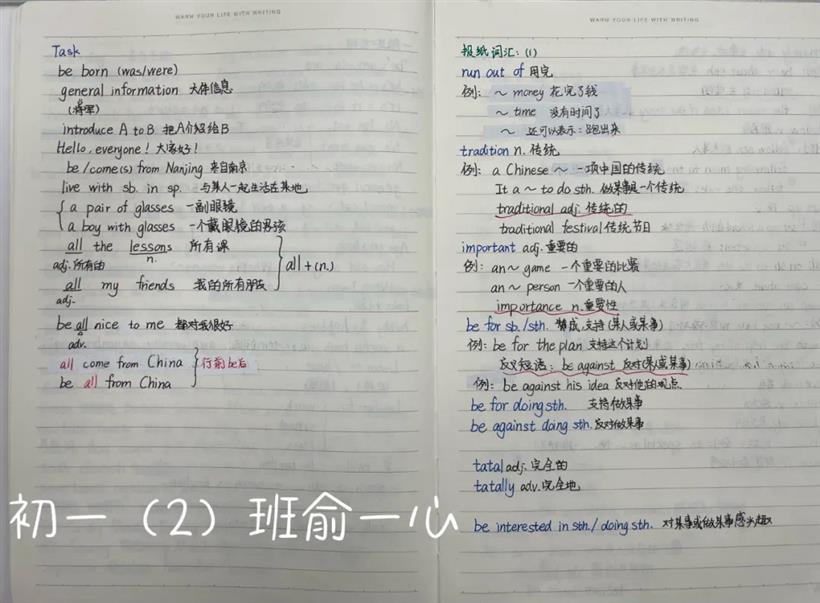 WARM YOUR LIFE WITH WRITING
Task
be born (was/were)
general information 大体信息
(将军)
introduce A to B 把A介绍给B
Hello, everyone! 大家好!
be/come(s) from Nanjing 来自南京
live with sb. in sp. 与某人一起生活在某地
a pair of glasses 一副眼镜
a boy with glasses 一个戴眼镜的男孩
all the lessons 所有课
adj.所有的 n.
all my friends 我的所有朋友
adj.
all+(n.)
be all nice to me 都对我很好
adv.
all come from China
be all from China
行前be后
WARM YOUR LIFE WITH WRITING
报纸词汇:(1)
run out of 用完
例: ~ money 花完了钱
~ time 没有时间了
~ 还可以表示:跑出来
tradition n. 传统
例: a Chinese ~ 一项中国的传统
It a ~ to do sth. 做某事是一个传统
traditional adj. 传统的
traditional festival 传统节日
important adj. 重要的
例: an ~ game 一个重要的比赛
an ~ person 一个重要的人
importance n. 重要性
be for sb./sth. 赞成,支持(某人或某事)
例: be for the plan 支持这个计划
反义短语: be against 反对(某人或某事)
例: be against his idea 反对他的观点
be for doing sth. 支持做某事
be against doing sth. 反对做某事
tatal adj. 完全的
tatally adv. 完全地
be interested in sth./doing sth. 对某事或做某事感兴趣
初一(2)班俞一心